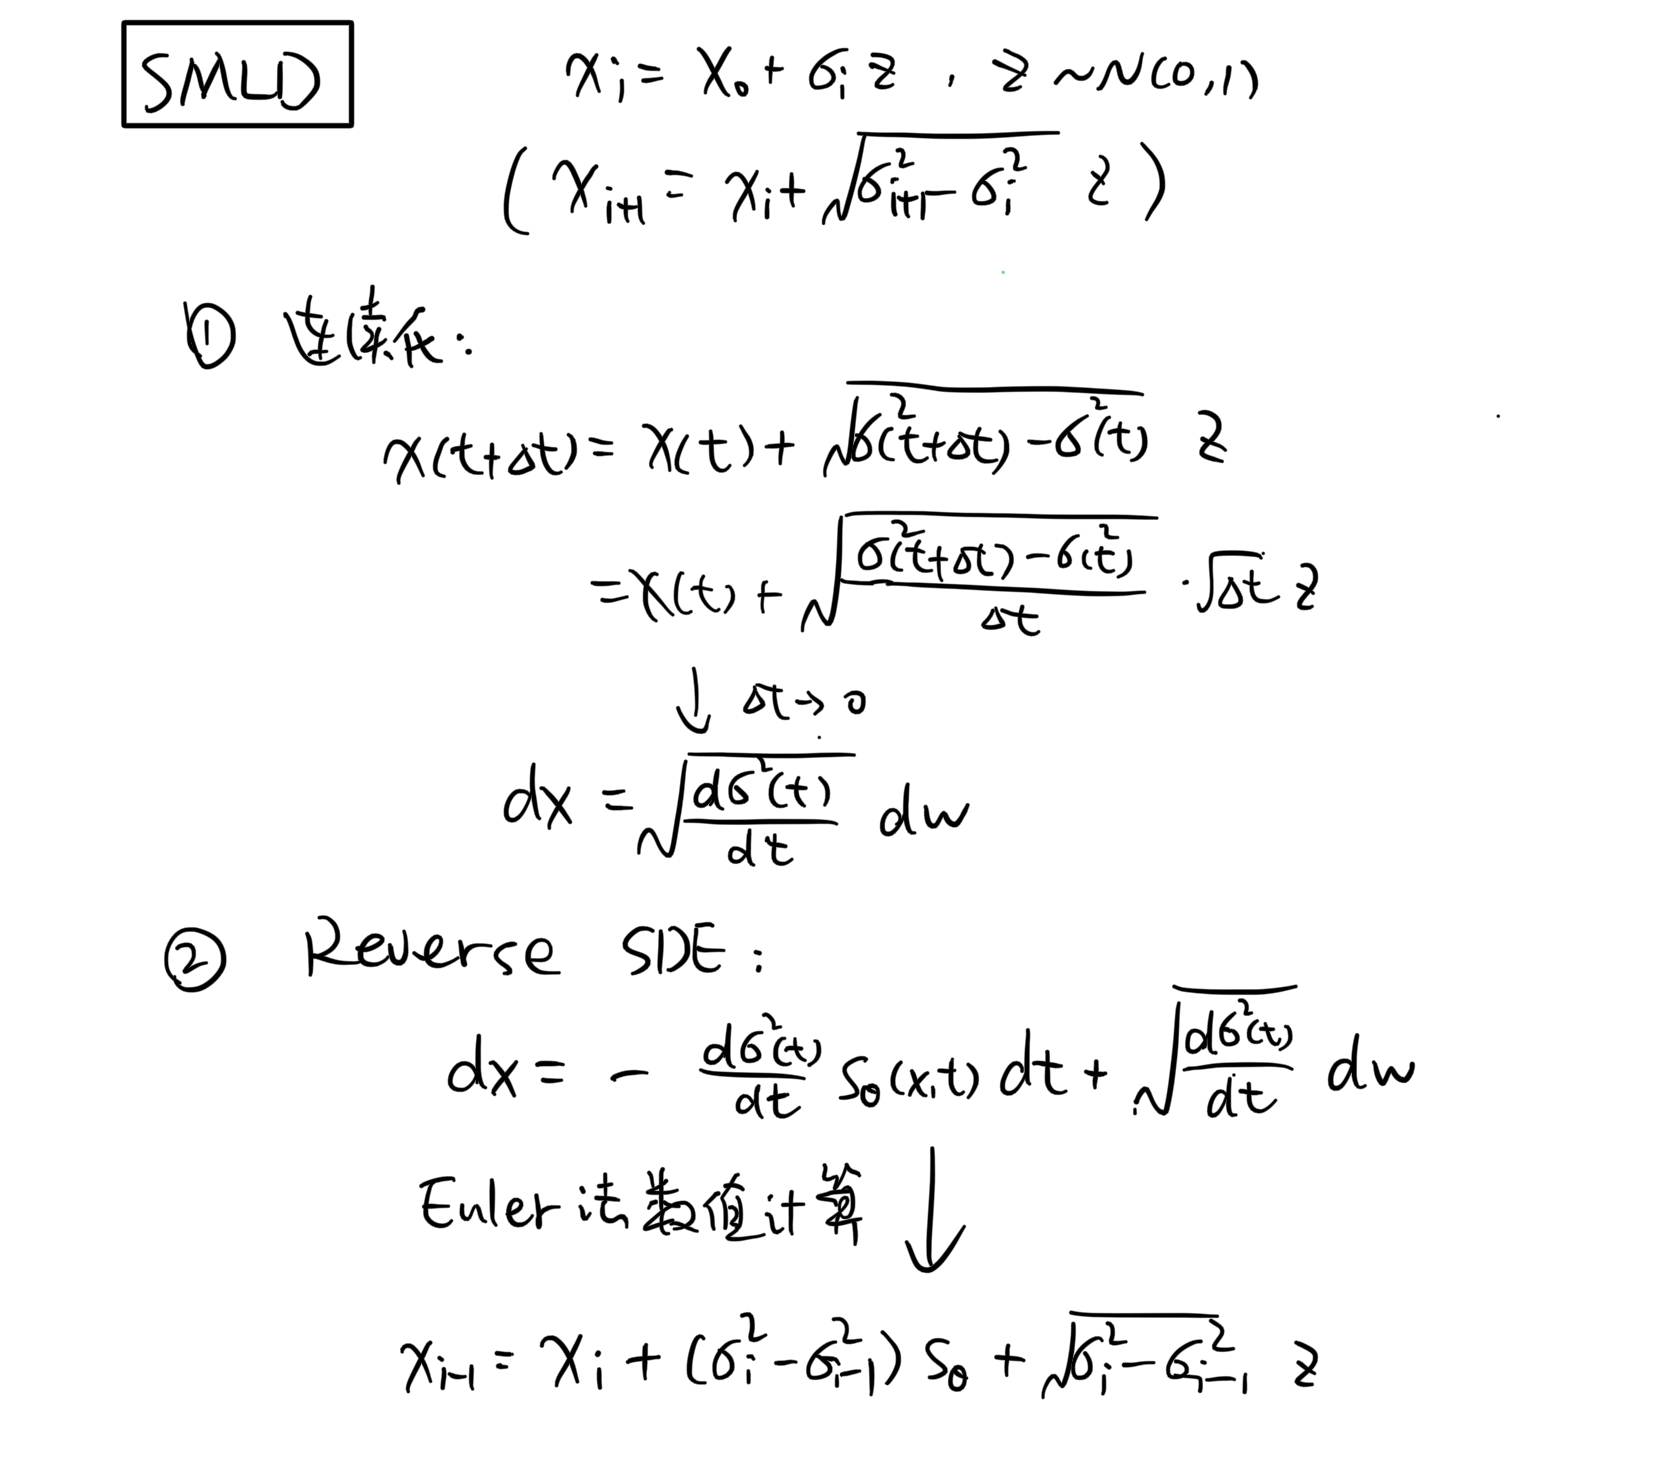 SMLD
xᵢ = x₀ + σᵢ z , z ~ N(0,1)
( xᵢ₊₁ = xᵢ + √(σ²ᵢ₊₁ - σᵢ²) z )
① 连续化:
x(t+Δt) = x(t) + √(σ²(t+Δt) - σ²(t)) z
= x(t) + √((σ²(t+Δt) - σ(t²))/Δt) · √Δt z
↓ Δt → 0
dx = √(dσ²(t)/dt) dw
② Reverse SDE:
dx = - dσ²(t)/dt Sθ(x,t) dt + √(dσ²(t)/dt) dw
Euler法数值计算 ↓
xᵢ₋₁ = xᵢ + (σᵢ² - σ²ᵢ₋₁) Sθ + √(σᵢ² - σ²ᵢ₋₁) z